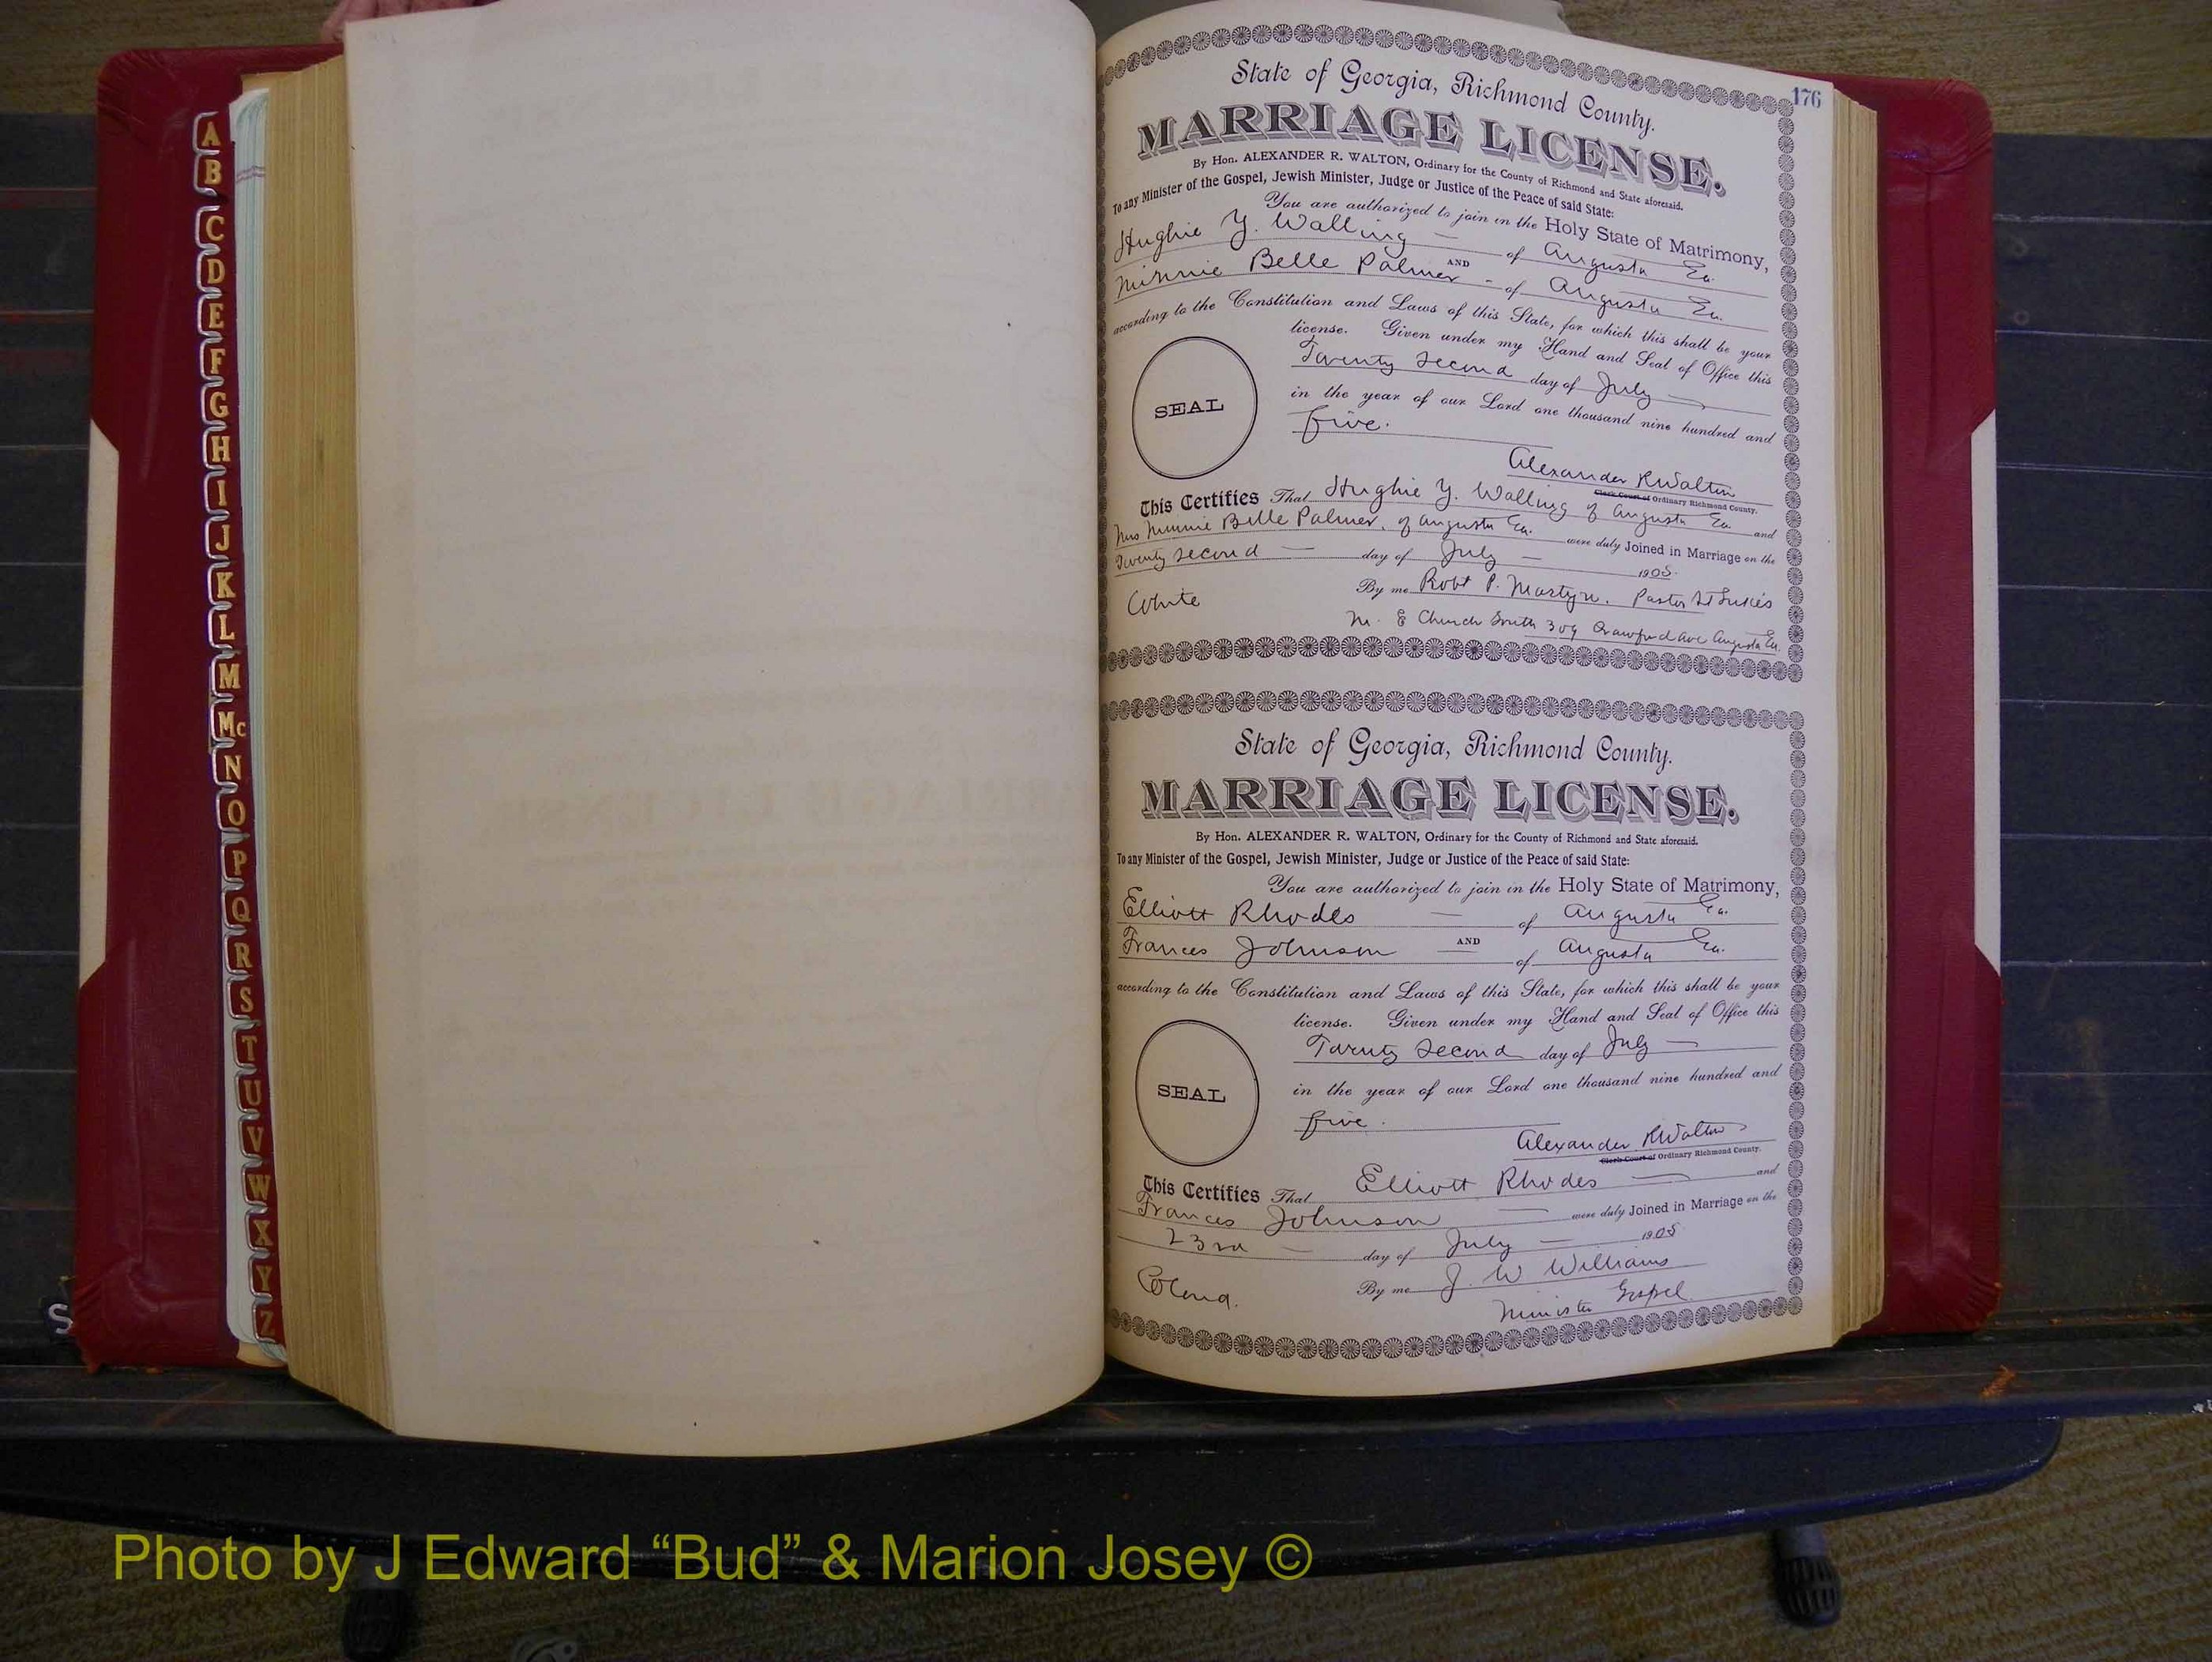 A
B
C
D
E
F
G
H
I
J
K
L
M
Mc
N
O
P
Q
R
S
T
U
V
W
X
Y
Z
S
176
State of Georgia, Richmond County.
MARRIAGE LICENSE.
By Hon. ALEXANDER R. WALTON, Ordinary for the County of Richmond and State aforesaid.
To any Minister of the Gospel, Jewish Minister, Judge or Justice of the Peace of said State:
You are authorized to join in the Holy State of Matrimony,
Hughie Y. Walling — of Augusta Ga.
AND
Minnie Belle Palmer - of Augusta Ga.
according to the Constitution and Laws of this State, for which this shall be your
license. Given under my Hand and Seal of Office this
Twenty Second day of July
in the year of our Lord one thousand nine hundred and
five.
SEAL
Alexander R Walton
Clerk Court of Ordinary Richmond County.
This Certifies That Hughie Y. Walling of Augusta Ga. and
Mrs Minnie Belle Palmer, of Augusta Ga. were duly Joined in Marriage on the
Twenty second — day of July — 1905.
White By me Robt P. Martyn. Pastor St Lukes
M. E Church South 309 Crawford Ave Augusta Ga.
State of Georgia, Richmond County.
MARRIAGE LICENSE.
By Hon. ALEXANDER R. WALTON, Ordinary for the County of Richmond and State aforesaid.
To any Minister of the Gospel, Jewish Minister, Judge or Justice of the Peace of said State:
You are authorized to join in the Holy State of Matrimony,
Elliott Rhodes — of Augusta Ga.
AND
Frances Johnson of Augusta Ga.
according to the Constitution and Laws of this State, for which this shall be your
license. Given under my Hand and Seal of Office this
Twenty Second day of July —
in the year of our Lord one thousand nine hundred and
five.
SEAL
Alexander R Walton
Clerk Court of Ordinary Richmond County.
This Certifies That Elliott Rhodes — and
Frances Johnson — were duly Joined in Marriage on the
23rd — day of July — 1905
Colerd. By me J. W Williams
Minister Gospel
Photo by J Edward “Bud” & Marion Josey ©